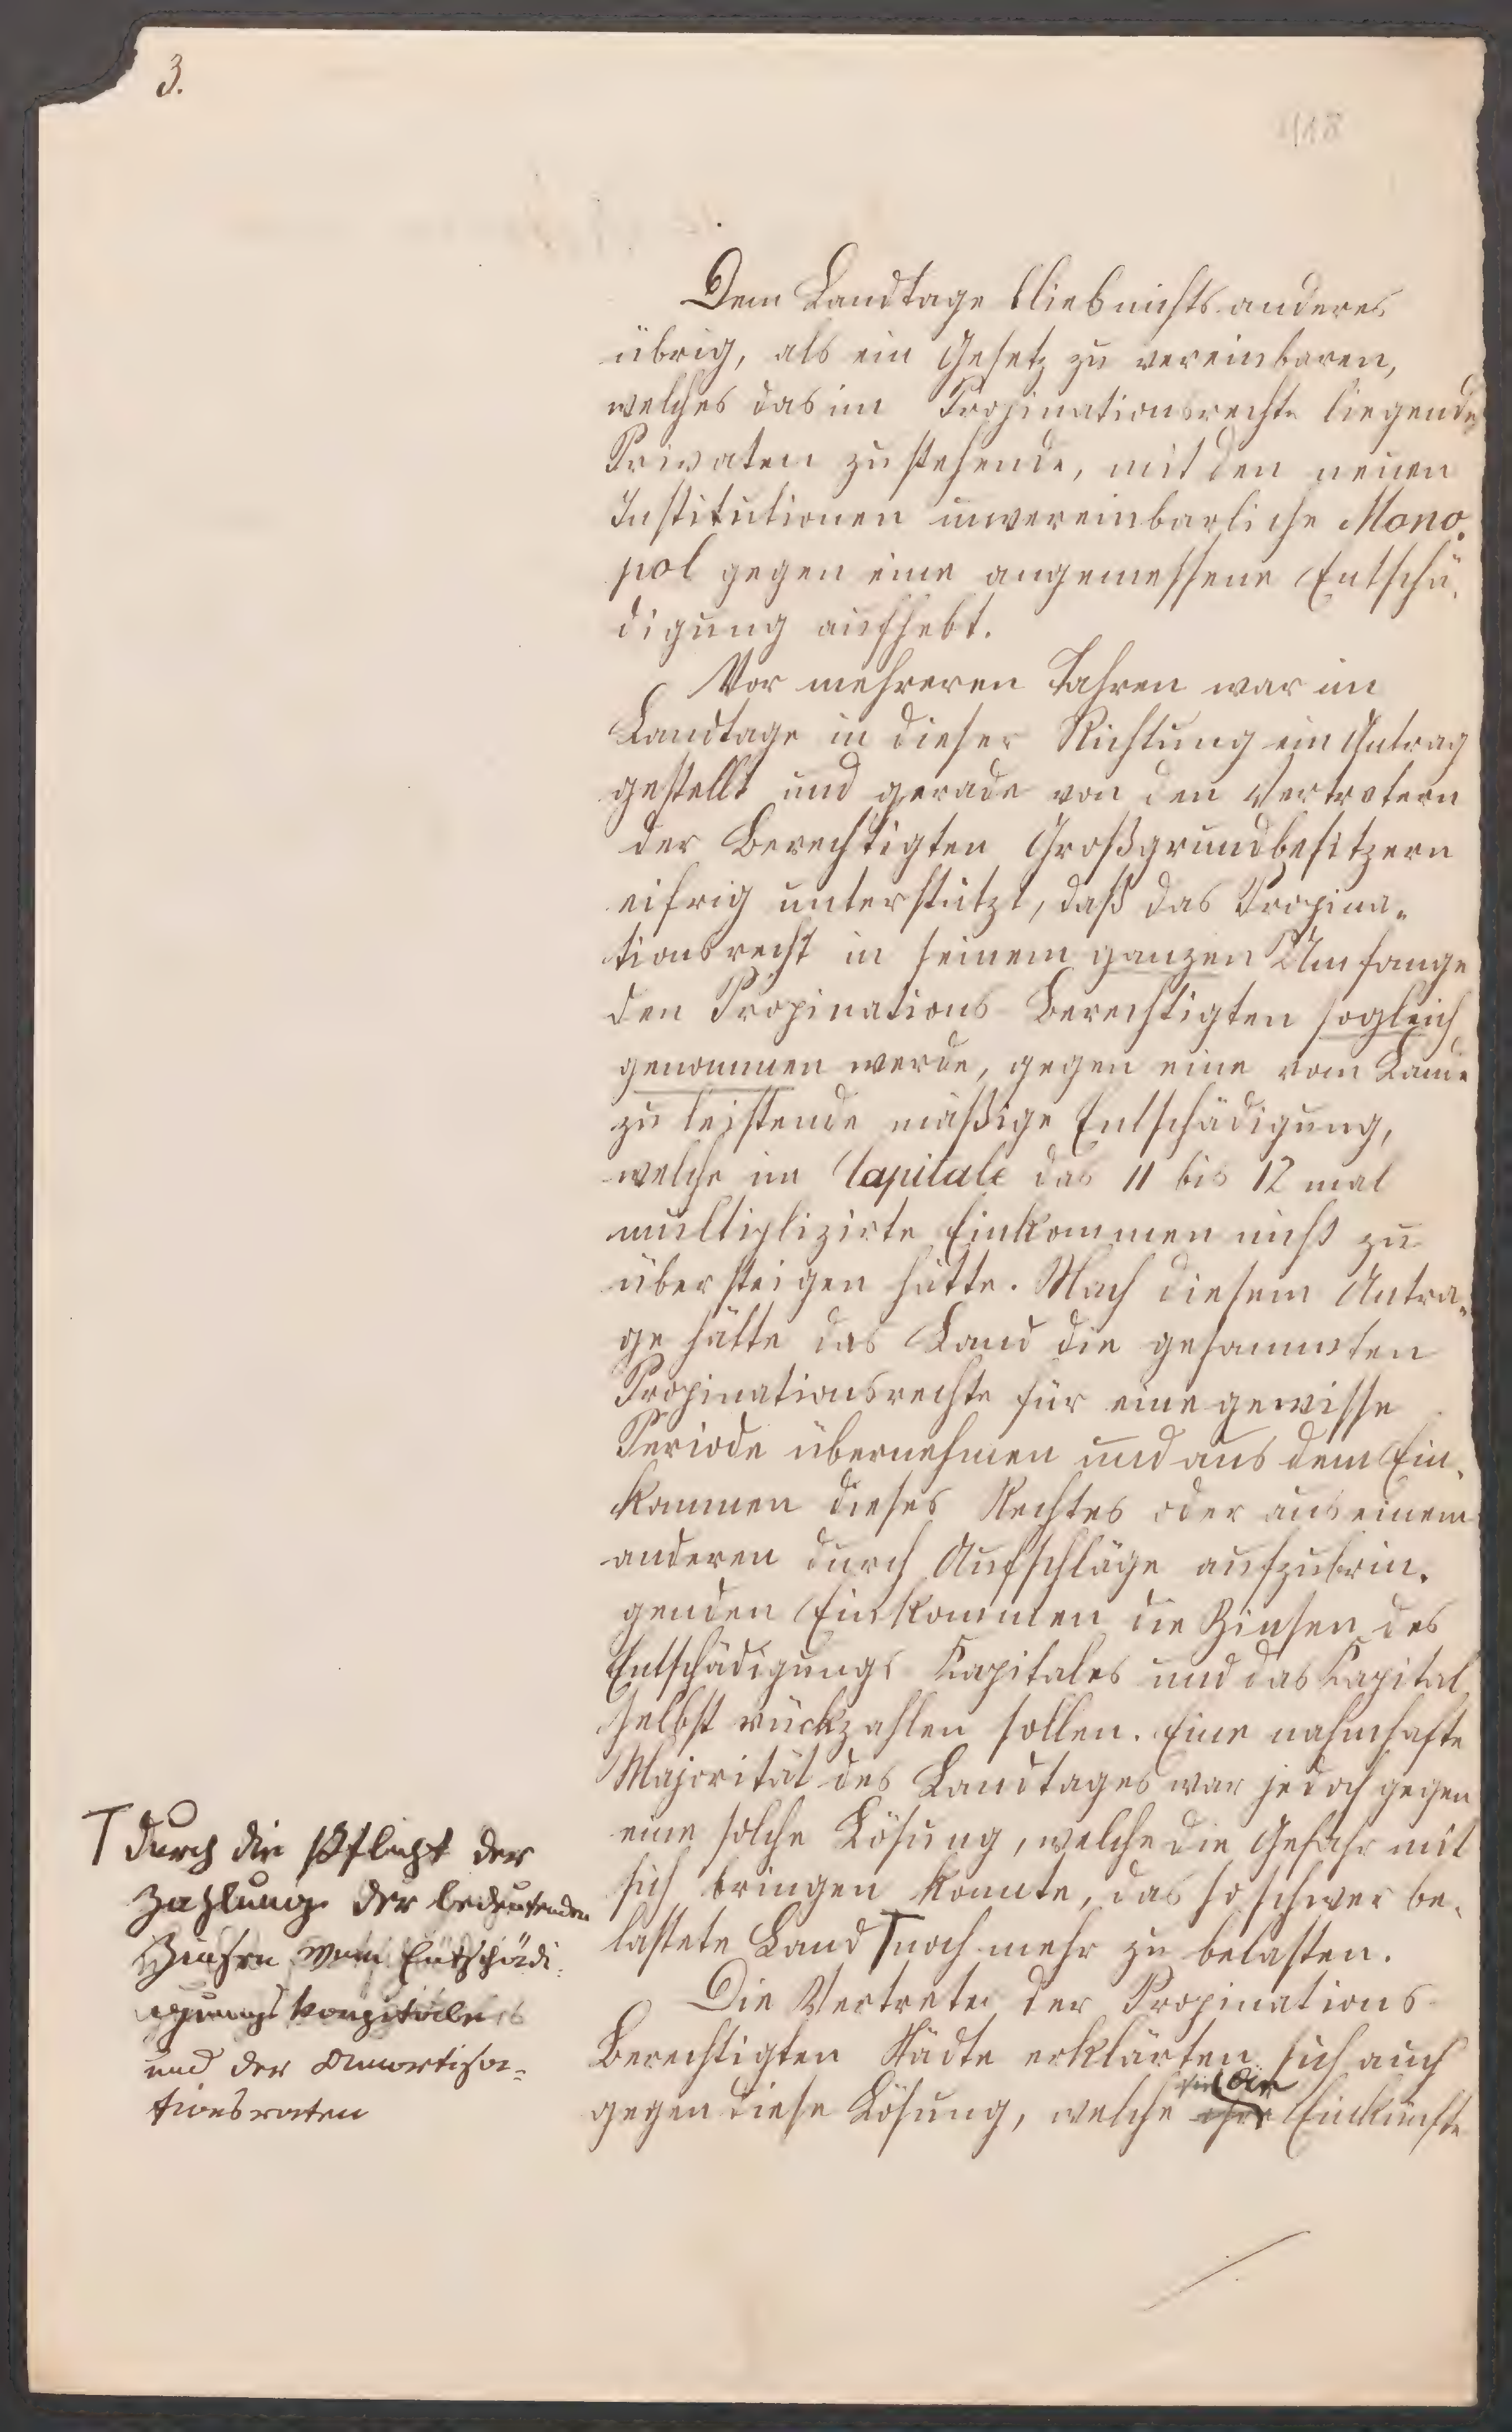 3.
Dem Landtage blieb nichts anderes
übrig, als ein Gesetz zu vereinbaren,
welches das im Propinationsrechte liegende,
Privaten zustehende, mit den neuen
Institutionen unvereinbarliche Mono-
pol gegen eine angemessene Entschä-
digung aufhebt.
Vor mehreren Jahren war im
Landtage in dieser Richtung ein Antrag
gestellt und gerade von den Vertretern
der Berechtigten Großgrundbesitzern
eifrig unterstützt, daß das Propina-
tionsrecht in seinem ganzen Umfange
den Propinations-Berechtigten sogleich
genommen werde, gegen eine vom Lande
zu leistende mäßige Entschädigung,
welche im Capitale das 11 bis 12 mal
multiplizirte Einkommen nicht zu
übersteigen hätte. Nach diesem Antra-
ge hätte das Land die gesammten
Propinationsrechte für eine gewisse
Periode übernehmen und aus dem Ein-
kommen dieses Rechtes oder aus einem
anderen durch Aufschläge aufzubrin-
genden Einkommen die Zinsen des
Entschädigungs-Kapitales und das Kapital
selbst rückzahlen sollen. Eine nahmhafte
Majorität des Landtages war jedoch gegen
eine solche Lösung, welche die Gefahr mit
sich bringen konnte, das so schwer be-
lastete Land ⊤ noch mehr zu belasten.
Die Vertreter der Propinations-
Berechtigten Städte erklärten sich auch
gegen diese Lösung, welche die Einkünfte
⊤ durch die Pflicht der
Zahlung der bedeutenden
Zinsen vom Entschädi-
gungskapitale
und der Amortisa-
tionsraten